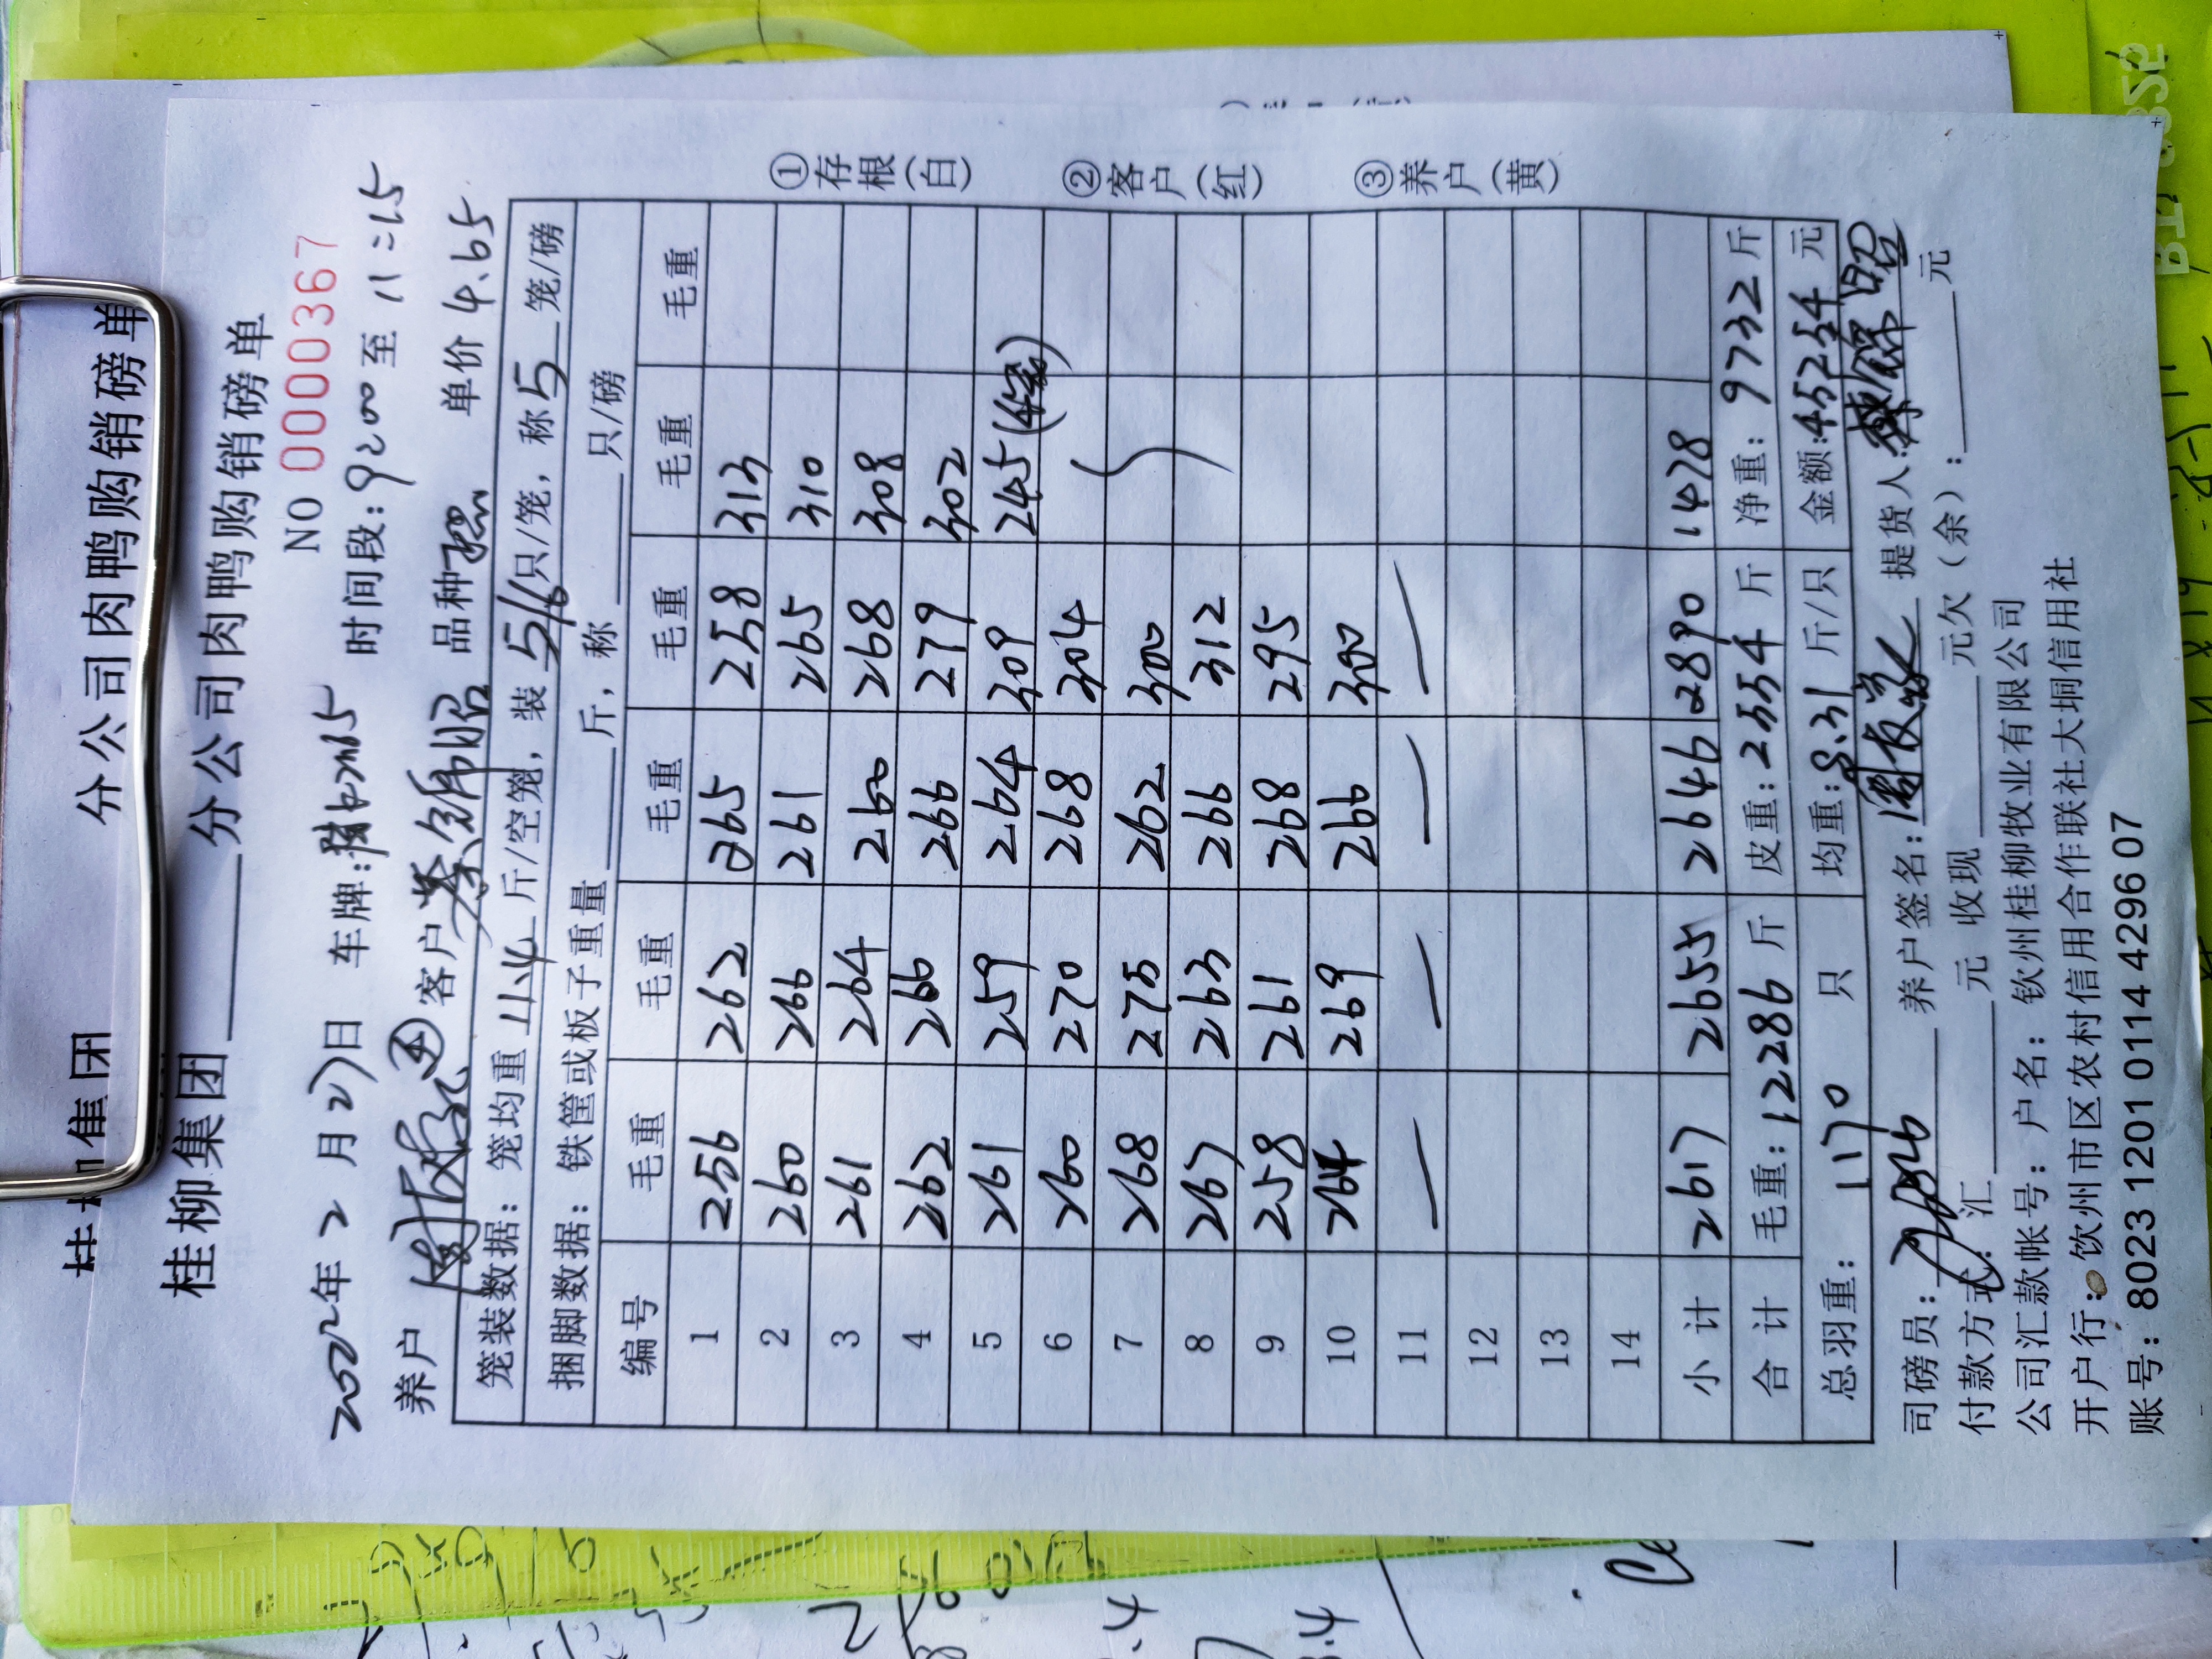 分公司肉鸭购销磅单
集团
桂柳集团______分公司肉鸭购销磅单
NO 0000367
2022年 2 月 27日 车牌: 时间段: 9:00 至 11:15
养户 客户 蔡锦昭 品种 单价 4.65
笼装数据: 笼均重 11.4 斤/空笼, 装 5/6 只/笼, 称 5 笼/磅
捆脚数据: 铁筐或板子重量______斤, 称______只/磅
编号 毛重 毛重 毛重 毛重 毛重 毛重
1 256 262 265 258 313
2 260 266 261 265 310
3 261 264 260 268 308
4 262 266 266 279 302
5 261 259 264 309 245 (4笼)
6 260 270 268 304
7 268 275 262 300
8 267 263 266 312
9 258 261 268 295
10 264 269 266 300
11 — — — —
12
13
14
小计 2617 2655 2646 2890 1478
合计 毛重: 12286 斤 皮重: 2554 斤 净重: 9732 斤
总羽重: 1170 只 均重: 8.31 斤/只 金额: 45254 元
司磅员: 养户签名: 提货人:
付款方式: 汇______元 收现______元欠(余):______元
公司汇款帐号: 户名: 钦州桂柳牧业有限公司
开户行: 钦州市区农村信用合作联社大垌信用社
账号: 8023 1201 0114 4296 07
①存根(白)
②客户(红)
③养户(黄)